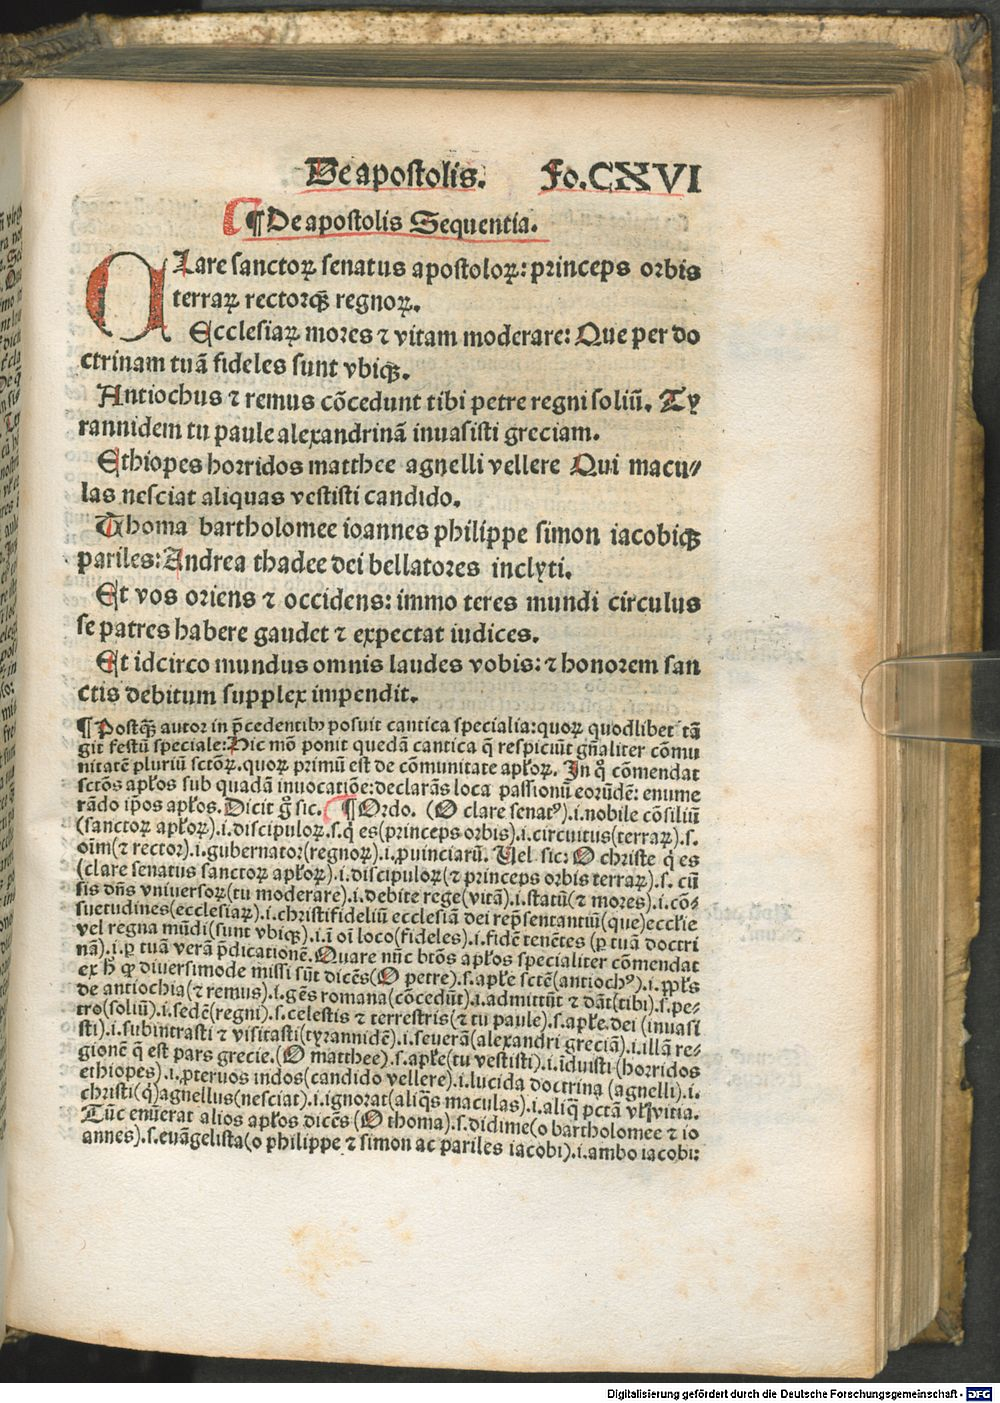 De apostolis. Fo.CXVI
¶De apostolis Sequentia.
CLare sanctoꝝ senatus apostoloꝝ: princeps orbis
terraꝝ rectorqꝫ regnoꝝ.
Ecclesiaꝝ mores ⁊ vitam moderare: Que per do
ctrinam tuā fideles sunt vbiqꝫ.
Antiochus ⁊ remus cōcedunt tibi petre regni soliū. Ty
rannidem tu paule alexandrinā inuasisti greciam.
Ethiopes horridos matthee agnelli vellere Qui macu⸗
las nesciat aliquas vestisti candido.
Thoma bartholomee ioannes philippe simon iacobiqꝫ
pariles: Andrea thadee dei bellatores inclyti.
Et vos oriens ⁊ occidens: immo teres mundi circulus
se patres habere gaudet ⁊ expectat iudices.
Et idcirco mundus omnis laudes vobis: ⁊ honorem san
ctis debitum supplex impendit.
¶Postqꝫ autor in p̄cedentibꝫ posuit cantica specialia: quoꝝ quodlibet tā
git festū speciale: Hic mō ponit quedā cantica q̄ respiciūt gn̄aliter cōmu
nitatē pluriū sctōꝝ. quoꝝ primū est de cōmunitate apl̄oꝝ. In qͦ cōmendat
sctōs apl̄os sub quadā inuocatiōe: declarās loca passionū eorūdē: enume
rādo ip̄os apl̄os. Dicit gͦ sic. ¶Ordo. (O clare senatꝰ).i.nobile cōsiliū
(sanctoꝝ apl̄oꝝ).i.discipuloꝝ.s.qͥ es(princeps orbis).i.circuitus(terraꝝ).s.
oīm(⁊ rector).i.gubernator(regnoꝝ).i.ꝓuinciarū. Uel sic: O christe qͥ es
(clare senatus sanctoꝝ apl̄oꝝ).i.discipuloꝝ(⁊ princeps orbis terraꝝ).s. cū
sis dn̄s vniuersoꝝ(tu moderare).i.debite rege(vitā).i.statū(⁊ mores).i.cō⸗
suetudines(ecclesiaꝝ).i.christifideliū ecclesiā dei rep̄sentantiū(que)eccl̄ie
vel regna mūdi(sunt vbiqꝫ).i.ī oī loco(fideles).i.fidē tenētes (ꝑ tuā doctri
nā).i.ꝑ tuā verā p̄dicationē. Quare nūc btōs apl̄os specialiter cōmendat
ex h̄ ꝙ diuersimode missi sūt dicēs(O petre).s.apl̄e sctē(antiochꝰ).i.ppl̄s
de antiochia(⁊ remus).i.gēs romana(cōcedūt).i.admittūt ⁊ dāt(tibi).s.pe⸗
tro(soliū).i.sedē(regni).s.celestis ⁊ terrestris(⁊ tu paule).s.apl̄e.dei (inuasi
sti).i.subintrasti ⁊ visitasti(tyrannidē).i.seuerā(alexandri greciā).i.illā re⸗
gionē q̄ est pars grecie.(O matthee).s.apl̄e(tu vestisti).i.īduisti(horridos
ethiopes).i.ꝓteruos indos(candido vellere).i.lucida doctrina (agnelli).i.
christi(qͥ)agnellus(nesciat).i.ignorat(aliqͣs maculas).i.aliqͣ pctā vl̓ vitia.
Tūc enūerat alios apl̄os dicēs(O thoma).s.didime(o bartholomee ⁊ io
annes).s.euāgelista(o philippe ⁊ simon ac pariles iacobi).i.ambo iacobi:
Digitalisierung gefördert durch die Deutsche Forschungsgemeinschaft - DFG